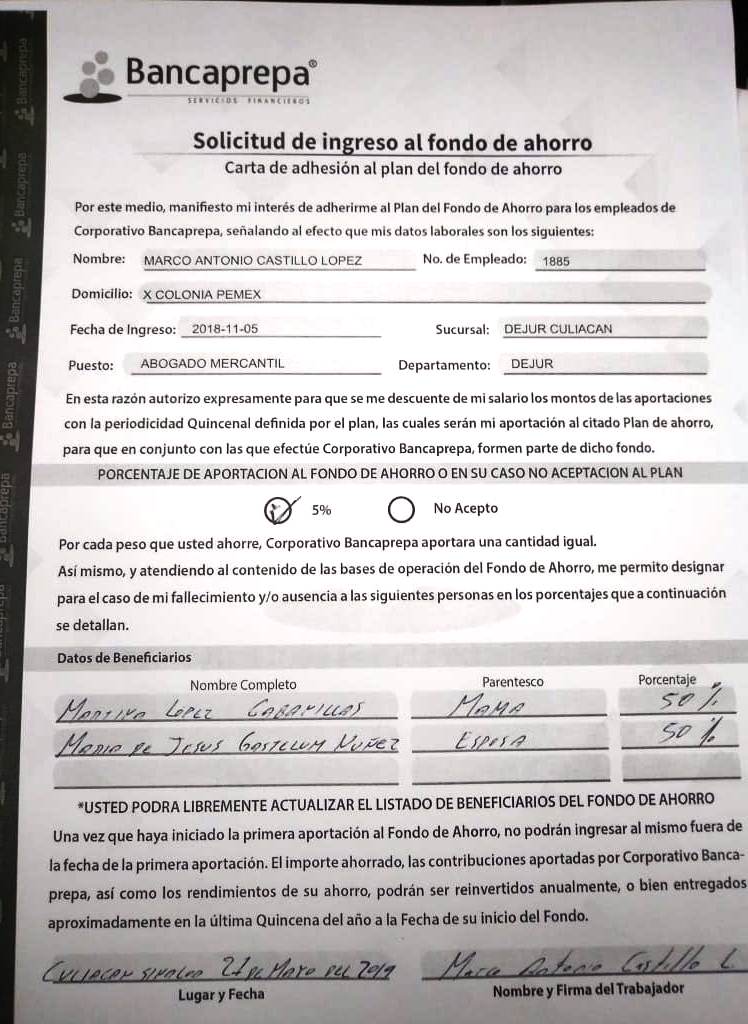 Bancaprepa®
SERVICIOS FINANCIEROS
Solicitud de ingreso al fondo de ahorro
Carta de adhesión al plan del fondo de ahorro
Por este medio, manifiesto mi interés de adherirme al Plan del Fondo de Ahorro para los empleados de
Corporativo Bancaprepa, señalando al efecto que mis datos laborales son los siguientes:
Nombre: MARCO ANTONIO CASTILLO LOPEZ No. de Empleado: 1885
Domicilio: X COLONIA PEMEX
Fecha de Ingreso: 2018-11-05 Sucursal: DEJUR CULIACAN
Puesto: ABOGADO MERCANTIL Departamento: DEJUR
En esta razón autorizo expresamente para que se me descuente de mi salario los montos de las aportaciones
con la periodicidad Quincenal definida por el plan, las cuales serán mi aportación al citado Plan de ahorro,
para que en conjunto con las que efectúe Corporativo Bancaprepa, formen parte de dicho fondo.
PORCENTAJE DE APORTACION AL FONDO DE AHORRO O EN SU CASO NO ACEPTACION AL PLAN
5% No Acepto
Por cada peso que usted ahorre, Corporativo Bancaprepa aportara una cantidad igual.
Así mismo, y atendiendo al contenido de las bases de operación del Fondo de Ahorro, me permito designar
para el caso de mi fallecimiento y/o ausencia a las siguientes personas en los porcentajes que a continuación
se detallan.
Datos de Beneficiarios
Nombre Completo Parentesco Porcentaje
LOPEZ MAMA 50%
MARIA DE JESUS GASTELUM NUÑEZ ESPOSA 50%
*USTED PODRA LIBREMENTE ACTUALIZAR EL LISTADO DE BENEFICIARIOS DEL FONDO DE AHORRO
Una vez que haya iniciado la primera aportación al Fondo de Ahorro, no podrán ingresar al mismo fuera de
la fecha de la primera aportación. El importe ahorrado, las contribuciones aportadas por Corporativo Banca-
prepa, así como los rendimientos de su ahorro, podrán ser reinvertidos anualmente, o bien entregados
aproximadamente en la última Quincena del año a la Fecha de su inicio del Fondo.
CULIACAN SINALOA 21 DE MAYO DEL 2019 Marco Antonio Castillo L.
Lugar y Fecha Nombre y Firma del Trabajador
Bancaprepa
Bancaprepa
Bancaprepa
Bancaprepa
Bancaprepa